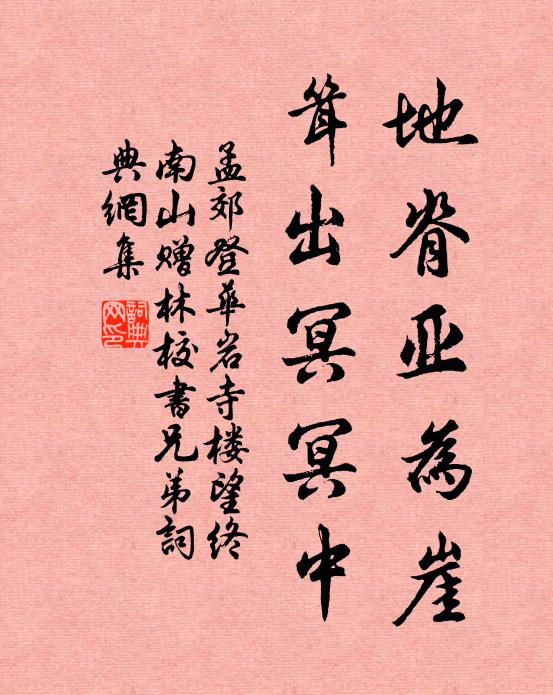 地脊亚為崖
耸出冥冥中
孟郊登华岩寺楼望终
南山赠林校書兄弟詞
典網集
詞典
网印